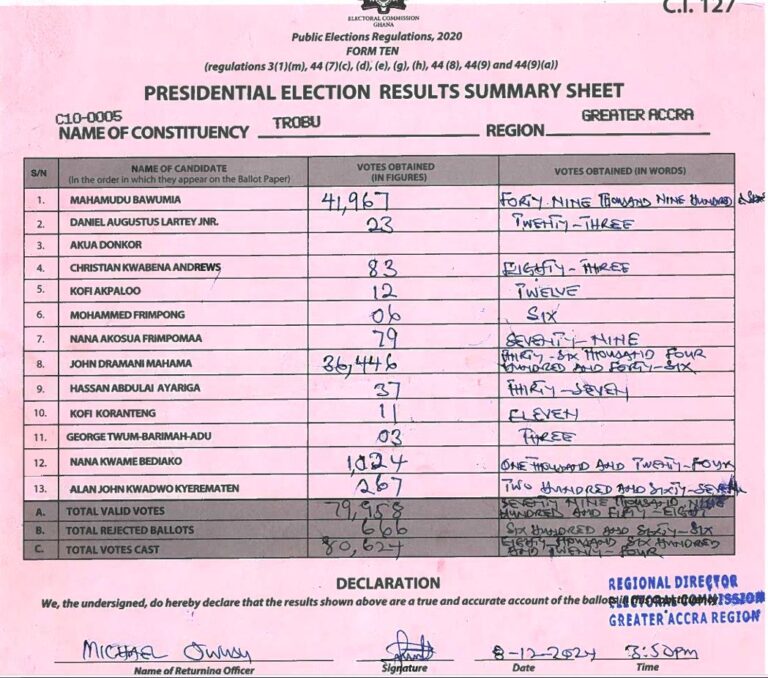 C.I. 127
ELECTORAL COMMISSION
GHANA
Public Elections Regulations, 2020
FORM TEN
(regulations 3(1)(m), 44 (7)(c), (d), (e), (g), (h), 44 (8), 44(9) and 44(9)(a))
PRESIDENTIAL ELECTION RESULTS SUMMARY SHEET
C10-0005
NAME OF CONSTITUENCY TROBU REGION GREATER ACCRA
S/N NAME OF CANDIDATE (In the order in which they appear on the Ballot Paper) VOTES OBTAINED (IN FIGURES) VOTES OBTAINED (IN WORDS)
1. MAHAMUDU BAWUMIA 41,967 FORTY NINE THOUSAND NINE HUNDRED &
2. DANIEL AUGUSTUS LARTEY JNR. 23 TWENTY-THREE
3. AKUA DONKOR
4. CHRISTIAN KWABENA ANDREWS 83 EIGHTY-THREE
5. KOFI AKPALOO 12 TWELVE
6. MOHAMMED FRIMPONG 06 SIX
7. NANA AKOSUA FRIMPOMAA 79 SEVENTY-NINE
8. JOHN DRAMANI MAHAMA 36,446 THIRTY-SIX THOUSAND FOUR HUNDRED AND FORTY-SIX
9. HASSAN ABDULAI AYARIGA 37 THIRTY-SEVEN
10. KOFI KORANTENG 11 ELEVEN
11. GEORGE TWUM-BARIMAH-ADU 03 THREE
12. NANA KWAME BEDIAKO 1,024 ONE THOUSAND AND TWENTY-FOUR
13. ALAN JOHN KWADWO KYEREMATEN 267 TWO HUNDRED AND SIXTY-SEVEN
A. TOTAL VALID VOTES 79,958 SEVENTY NINE THOUSAND NINE HUNDRED AND FIFTY-EIGHT
B. TOTAL REJECTED BALLOTS 666 SIX HUNDRED AND SIXTY-SIX
C. TOTAL VOTES CAST 80,624 EIGHTY THOUSAND SIX HUNDRED AND TWENTY-FOUR
DECLARATION
We, the undersigned, do hereby declare that the results shown above are a true and accurate account of the ballot
REGIONAL DIRECTOR
ELECTORAL COMMISSION
GREATER ACCRA REGION
MICHAEL OWUSU 8-12-2024 3:50pm
Name of Returning Officer Signature Date Time